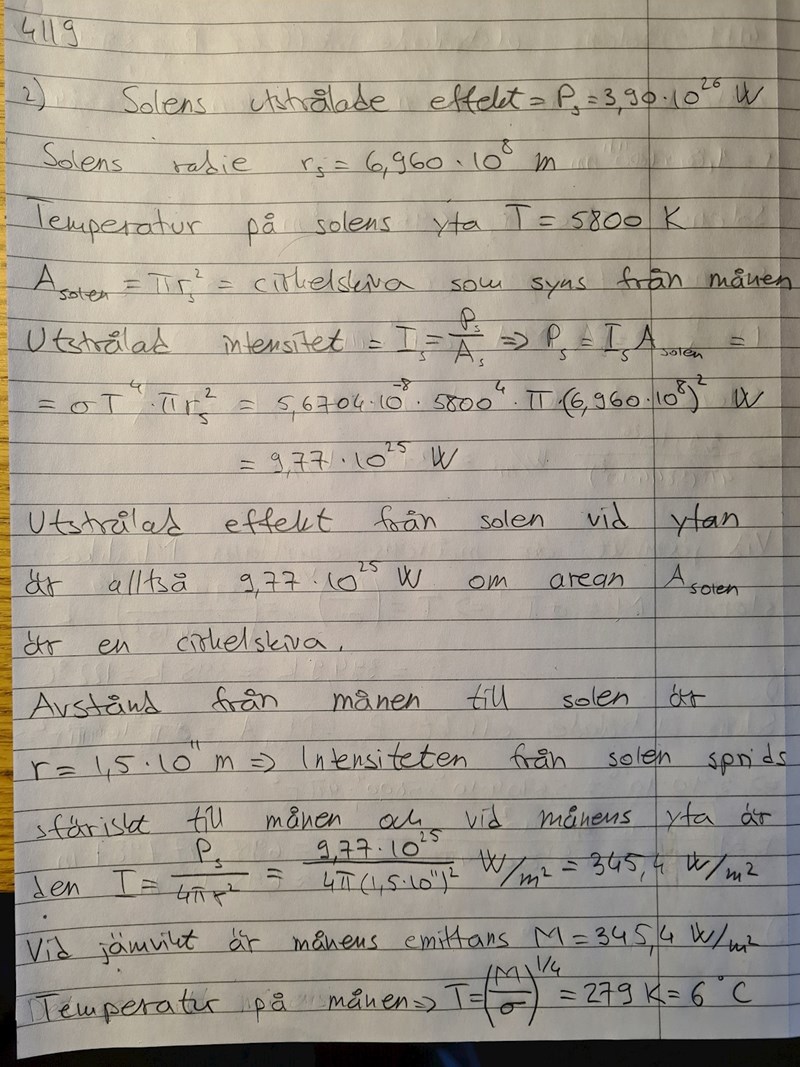 4119
2) Solens utstrålade effekt = P_s = 3,90·10^26 W
Solens radie r_s = 6,960·10^8 m
Temperatur på solens yta T = 5800 K
A_solen = πr_s^2 = cirkelskiva som syns från månen
Utstrålad intensitet = I_s = P_s/A_s ⇒ P_s = I_s A_solen =
= σT^4·πr_s^2 = 5,6704·10^-8·5800^4·π·(6,960·10^8)^2 W
= 9,77·10^25 W
Utstrålad effekt från solen vid ytan
är alltså 9,77·10^25 W om arean A_solen
är en cirkelskiva.
Avstånd från månen till solen är
r = 1,5·10^11 m ⇒ Intensiteten från solen sprids
sfäriskt till månen och vid månens yta är
den I = P_s/4πr^2 = 9,77·10^25/4π(1,5·10^11)^2 W/m^2 = 345,4 W/m^2
Vid jämvikt är månens emittans M = 345,4 W/m^2
Temperatur på månen ⇒ T = (M/σ)^1/4 = 279 K = 6 °C